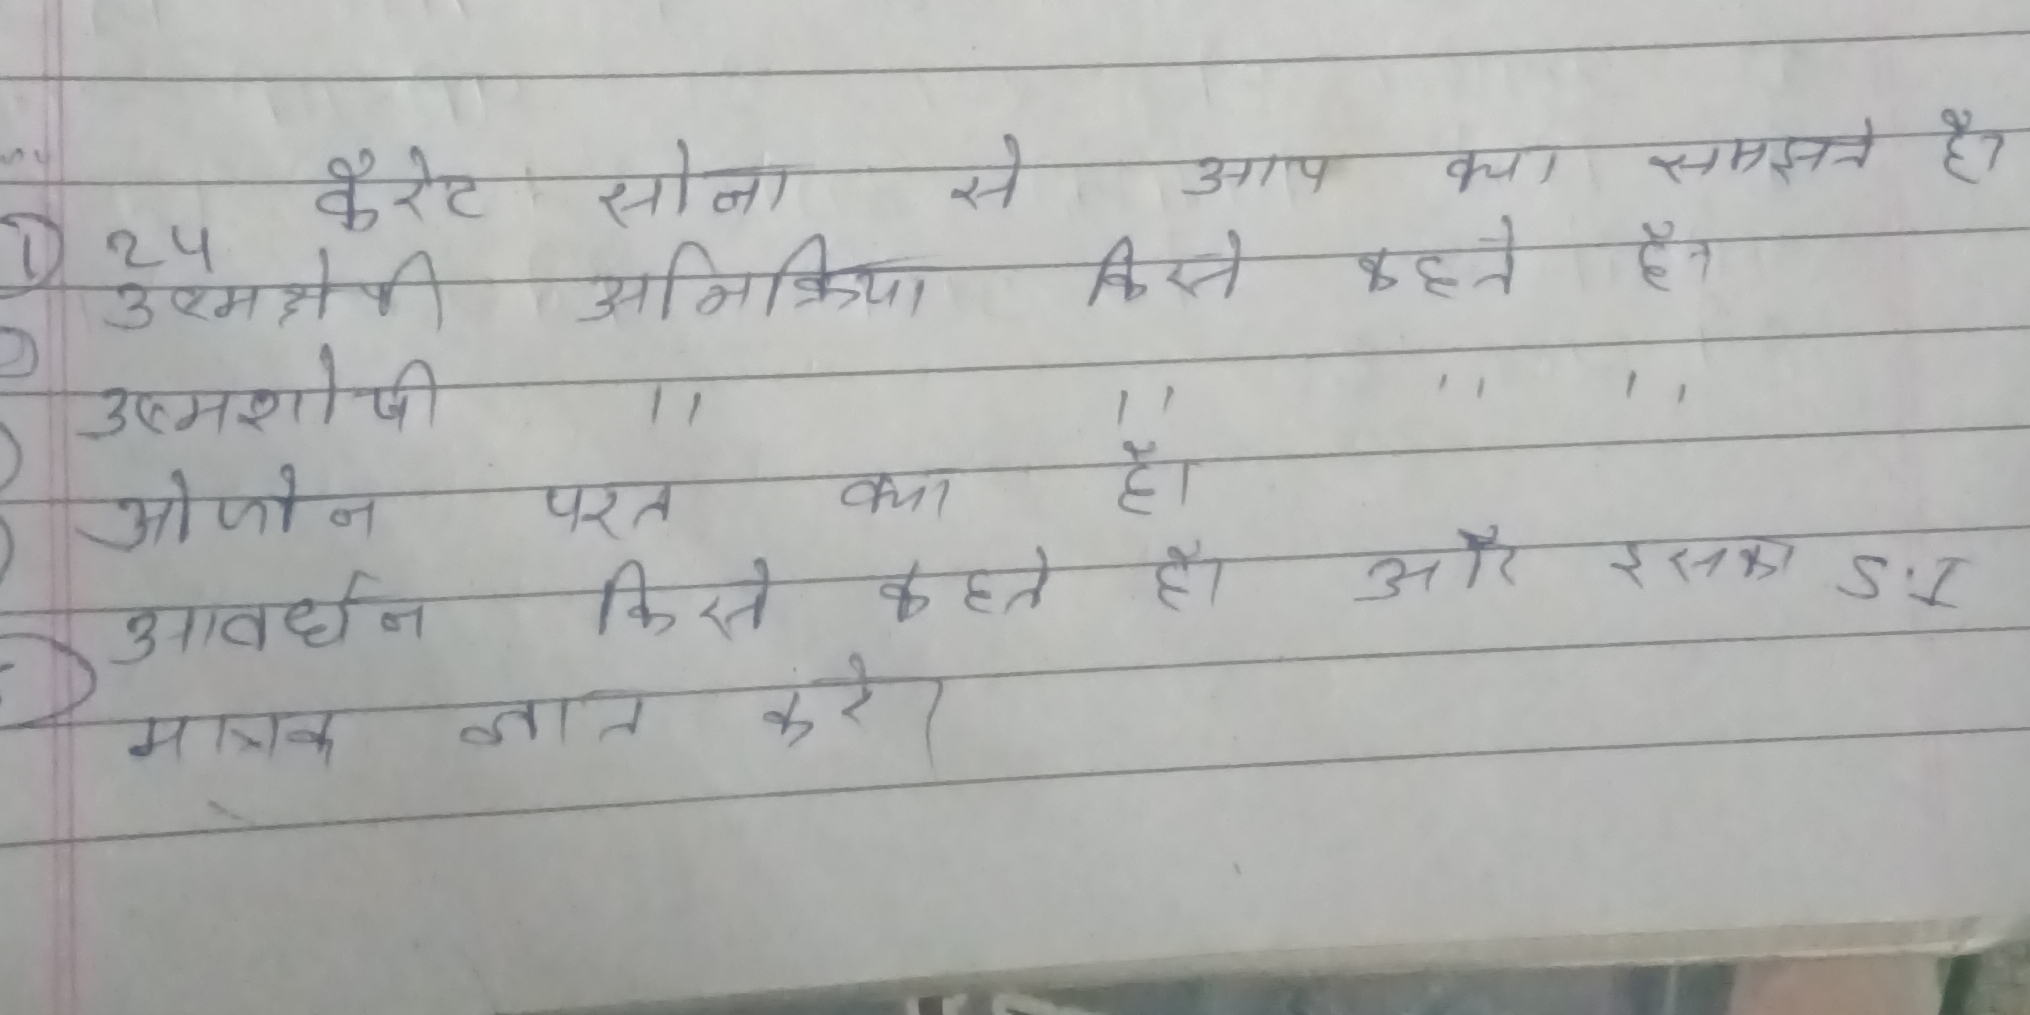 ① 24 कैरेट सोना से आप क्या समझते है।
उष्मक्षेपी अभिक्रिया किसे कहते है।
उष्मशोषी '' '' '' ''
ओजोन परत क्या है।
आवर्धन किसे कहते है। और इसका S.I
मात्रक ज्ञात करे।